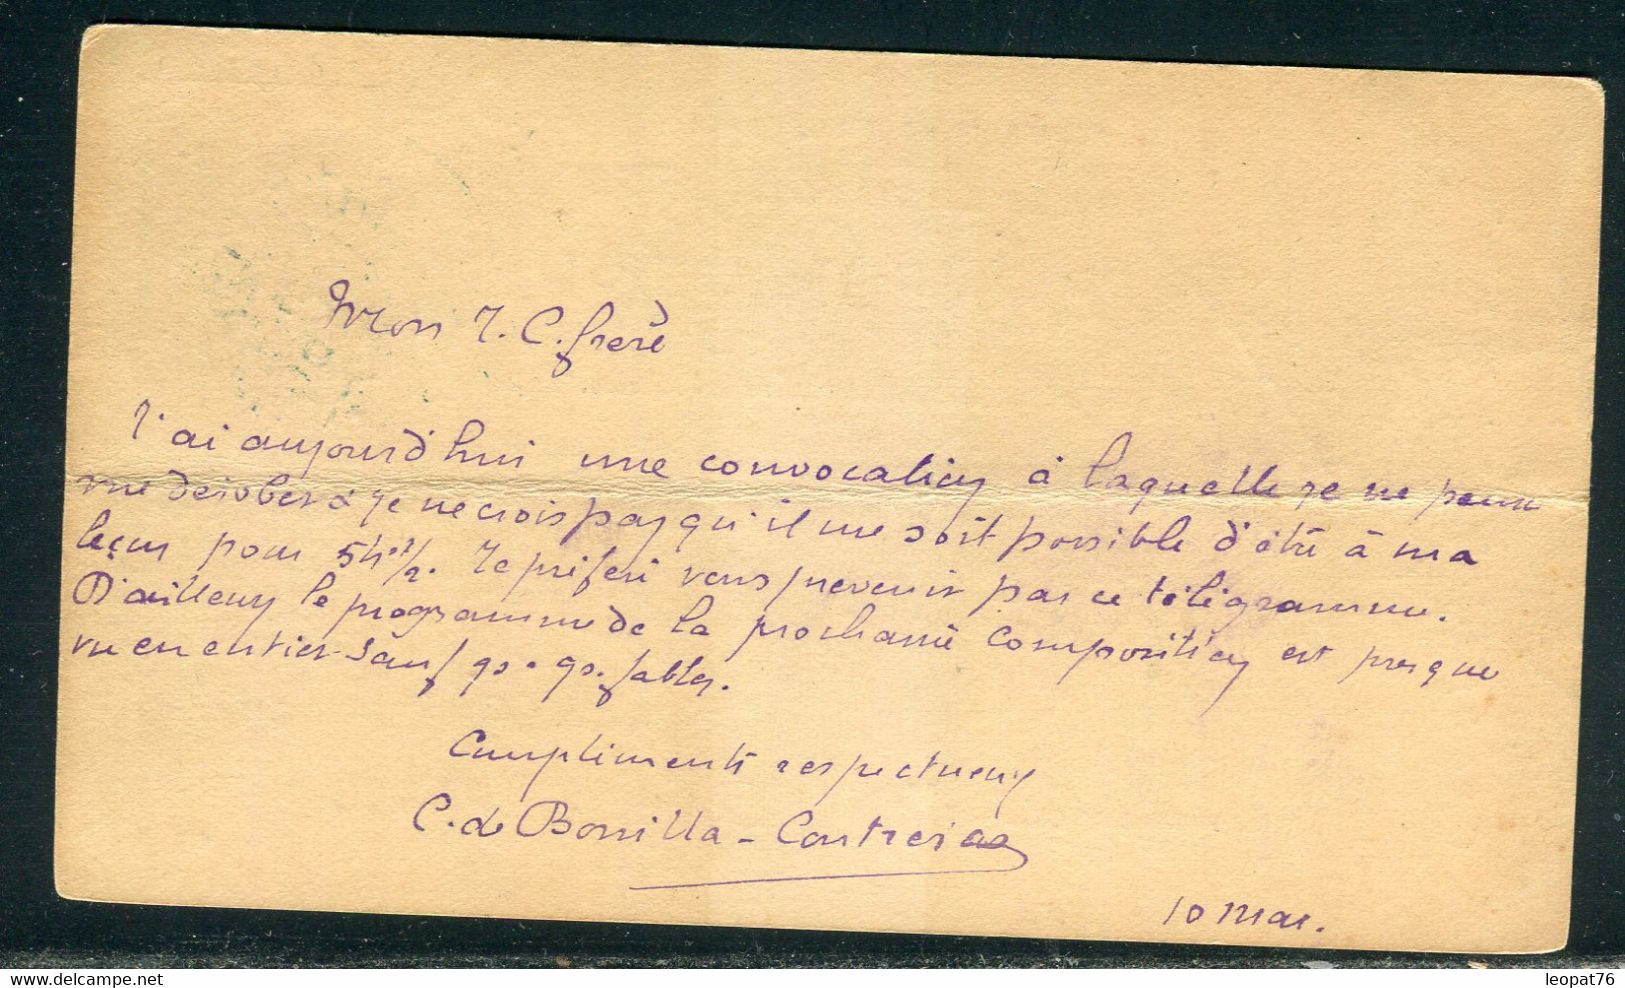 Mon T. C. frère
J'ai aujourd'hui une convocation à laquelle je ne peux
me dérober & je ne crois pas qu'il me soit possible d'être à ma
leçon pour 5h 1/2. Je préfère vous prévenir par ce télégramme.
D'ailleurs le programme de la prochaine composition est presque
vu en entier sauf qq. qq. fables.
Compliments respectueux
C. de Bonilla - Contreras
10 Mar.
leopat76